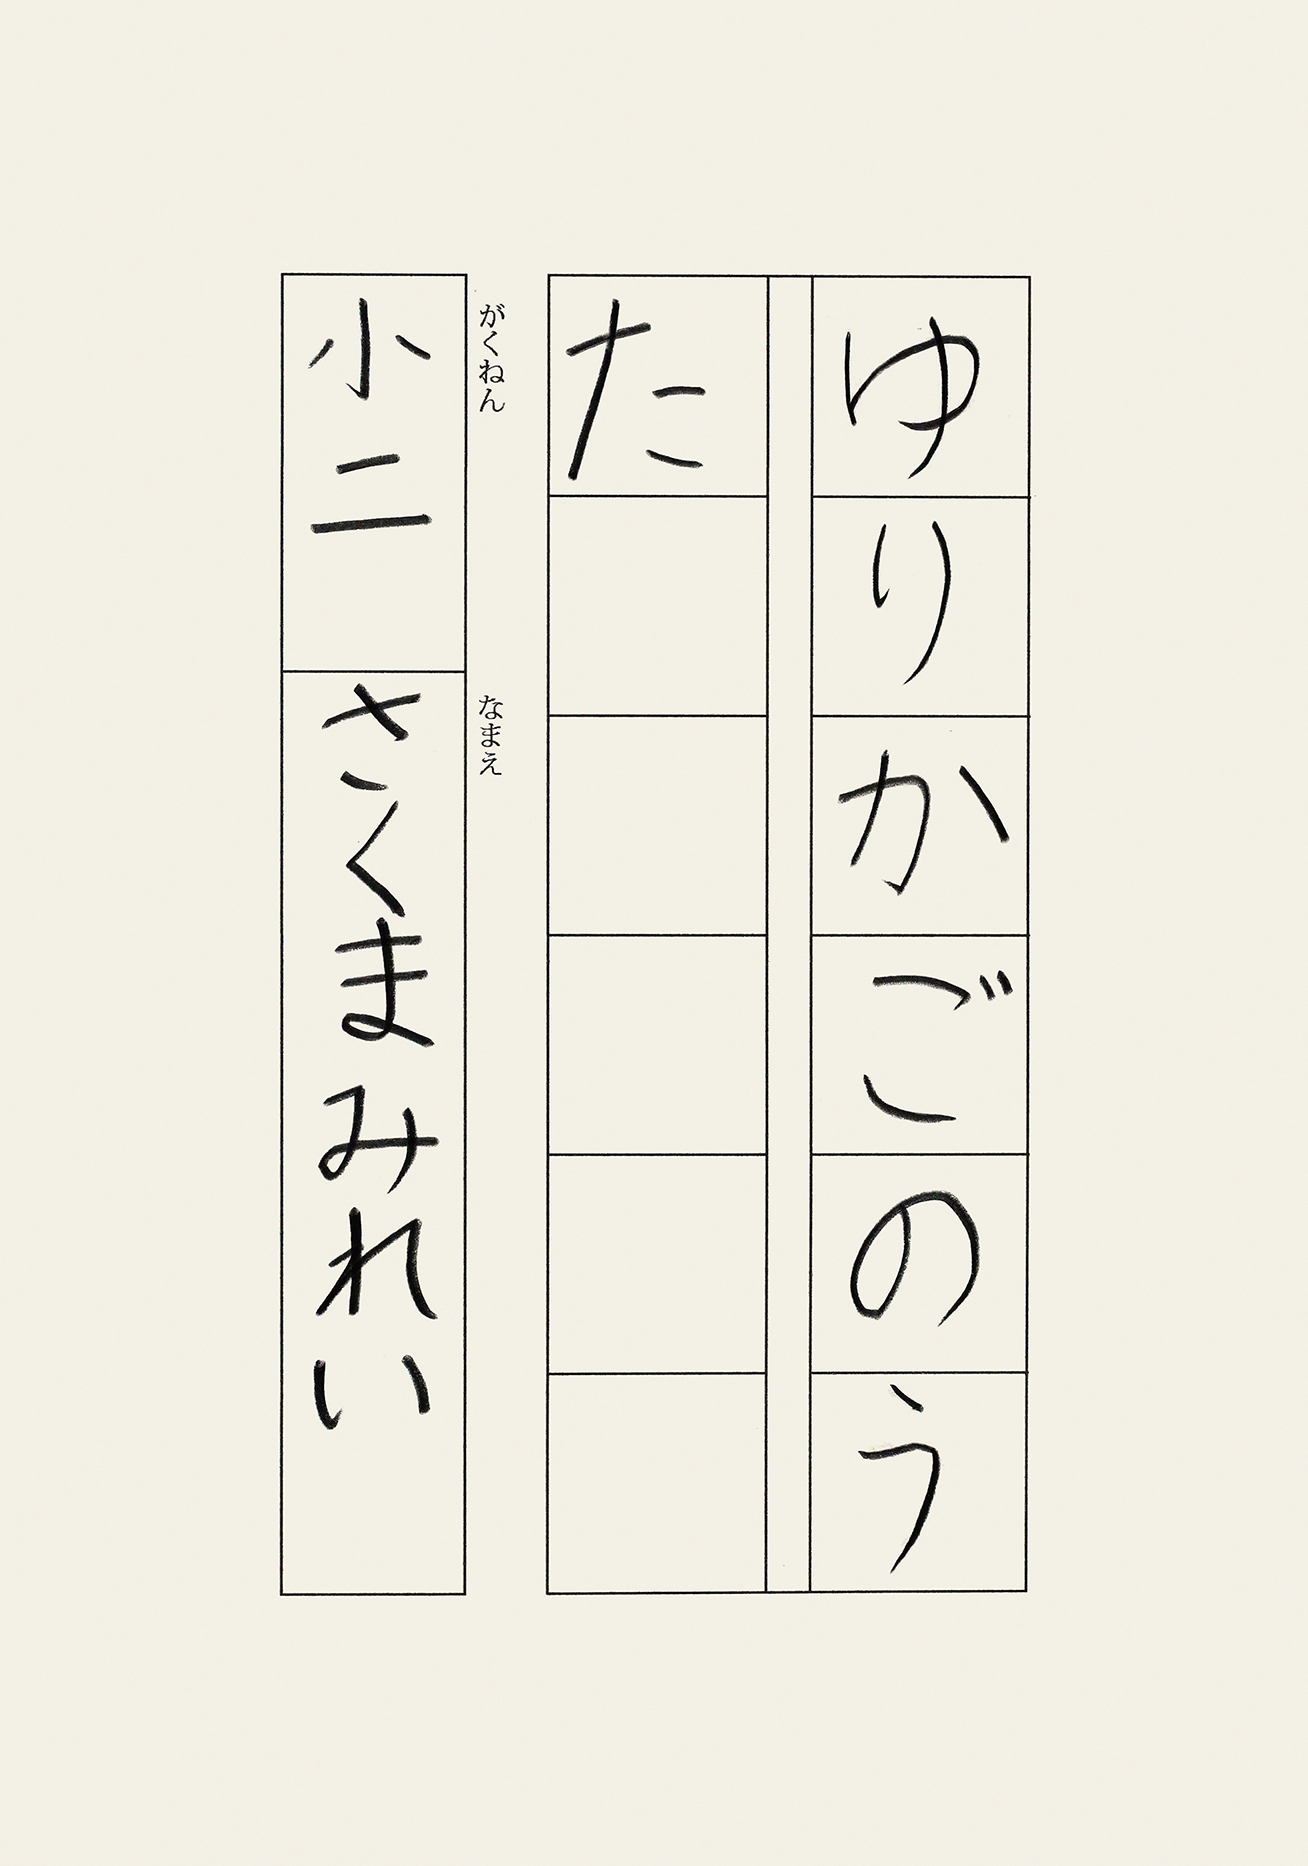 ゆりかごのう
た
がくねん
小二
なまえ
さくまみれい